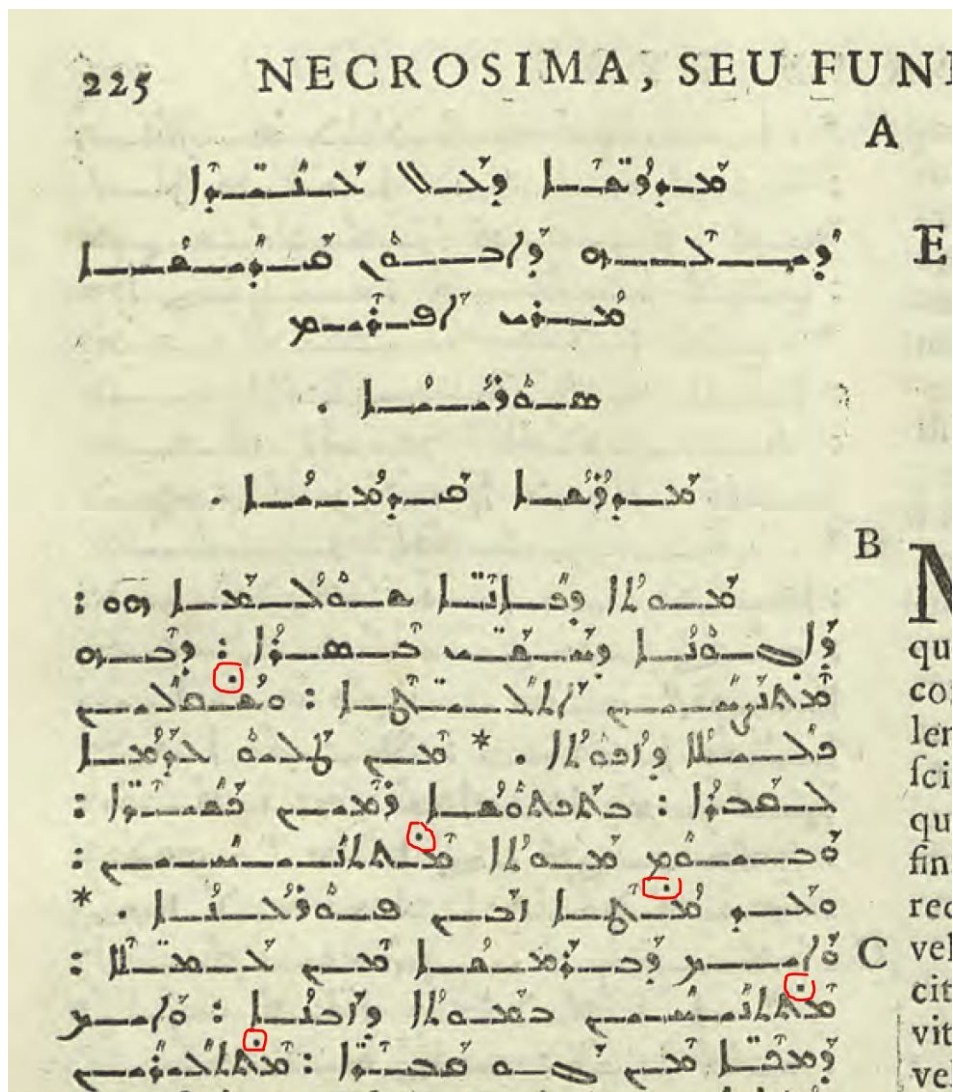 225 NECROSIMA, SEU FUN
A
ܡܕܪ̈ܫܐ ܕܥܠ ܥܢܝ̈ܕܐ
ܕܝܠܗ ܕܐܒܘܢ ܩܕܝܫܐ
ܡܪܝ ܐܦܪܝܡ
ܣܘܪܝܝܐ .
ܡܕܪܫܐ ܩܕܡܝܐ .
B
ܡܘܬܐ ܕܟܐܢ̈ܐ ܫܘܠܡܐ ܗܘ :
ܕܐܓܘܢܐ ܕܚܫ̈ܝ ܒܣܪܐ : ܕܒܗ
ܡܬܢܨܚܝܢ ܐܬܠܝ̈ܛܐ : ܘܫܩܠܝܢ
ܟܠܝܠܐ ܕܙܟܘܬܐ . * ܡܢ ܛܠܝܘ ܥܕܡܐ
ܠܩܒܪܐ : ܒܬܟܬܘܫܐ ܪܡܝܢ ܟܫܝܪ̈ܐ :
ܘܒܝܘܡ ܡܘܬܐ ܡܬܬܢܝܚܝܢ :
ܘܥܕ ܡܛܐ ܙܒܢ ܦܘܪܥܢܐ . *
ܘܐܝܟ ܕܒܪܡܫܐ ܡܢ ܥܡ̈ܠܐ :
C
ܡܬܬܢܝܚܝܢ ܒܡܘܬܐ ܕܙܒܢܐ : ܘܐܝܟ
ܕܡܟ̈ܐ ܡܢ ܓܘ ܩܒܪ̈ܐ : ܡܬܬܥܝܪܝܢ
E
N
qu
co
ler
sci
qu
fin
rec
vel
cit
vit
ve